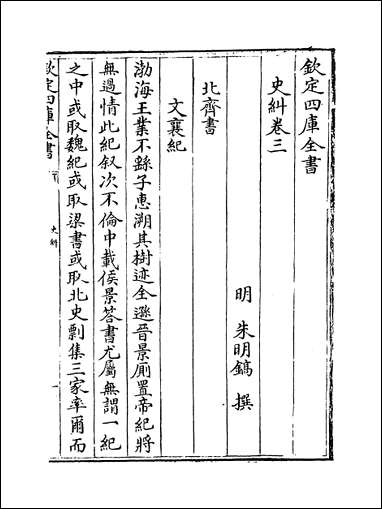 欽定四庫全書
史糾卷三
明 朱明鎬 撰
北齊書
文襄紀
渤海王業不繇子惠溯其樹迹全遜晉景廁置帝紀將
無過情此紀叙次不倫中載侯景答書尤屬無謂一紀
之中或取魏紀或取梁書或取北史剽集三家率爾而
欽定四庫全書
史糾
一